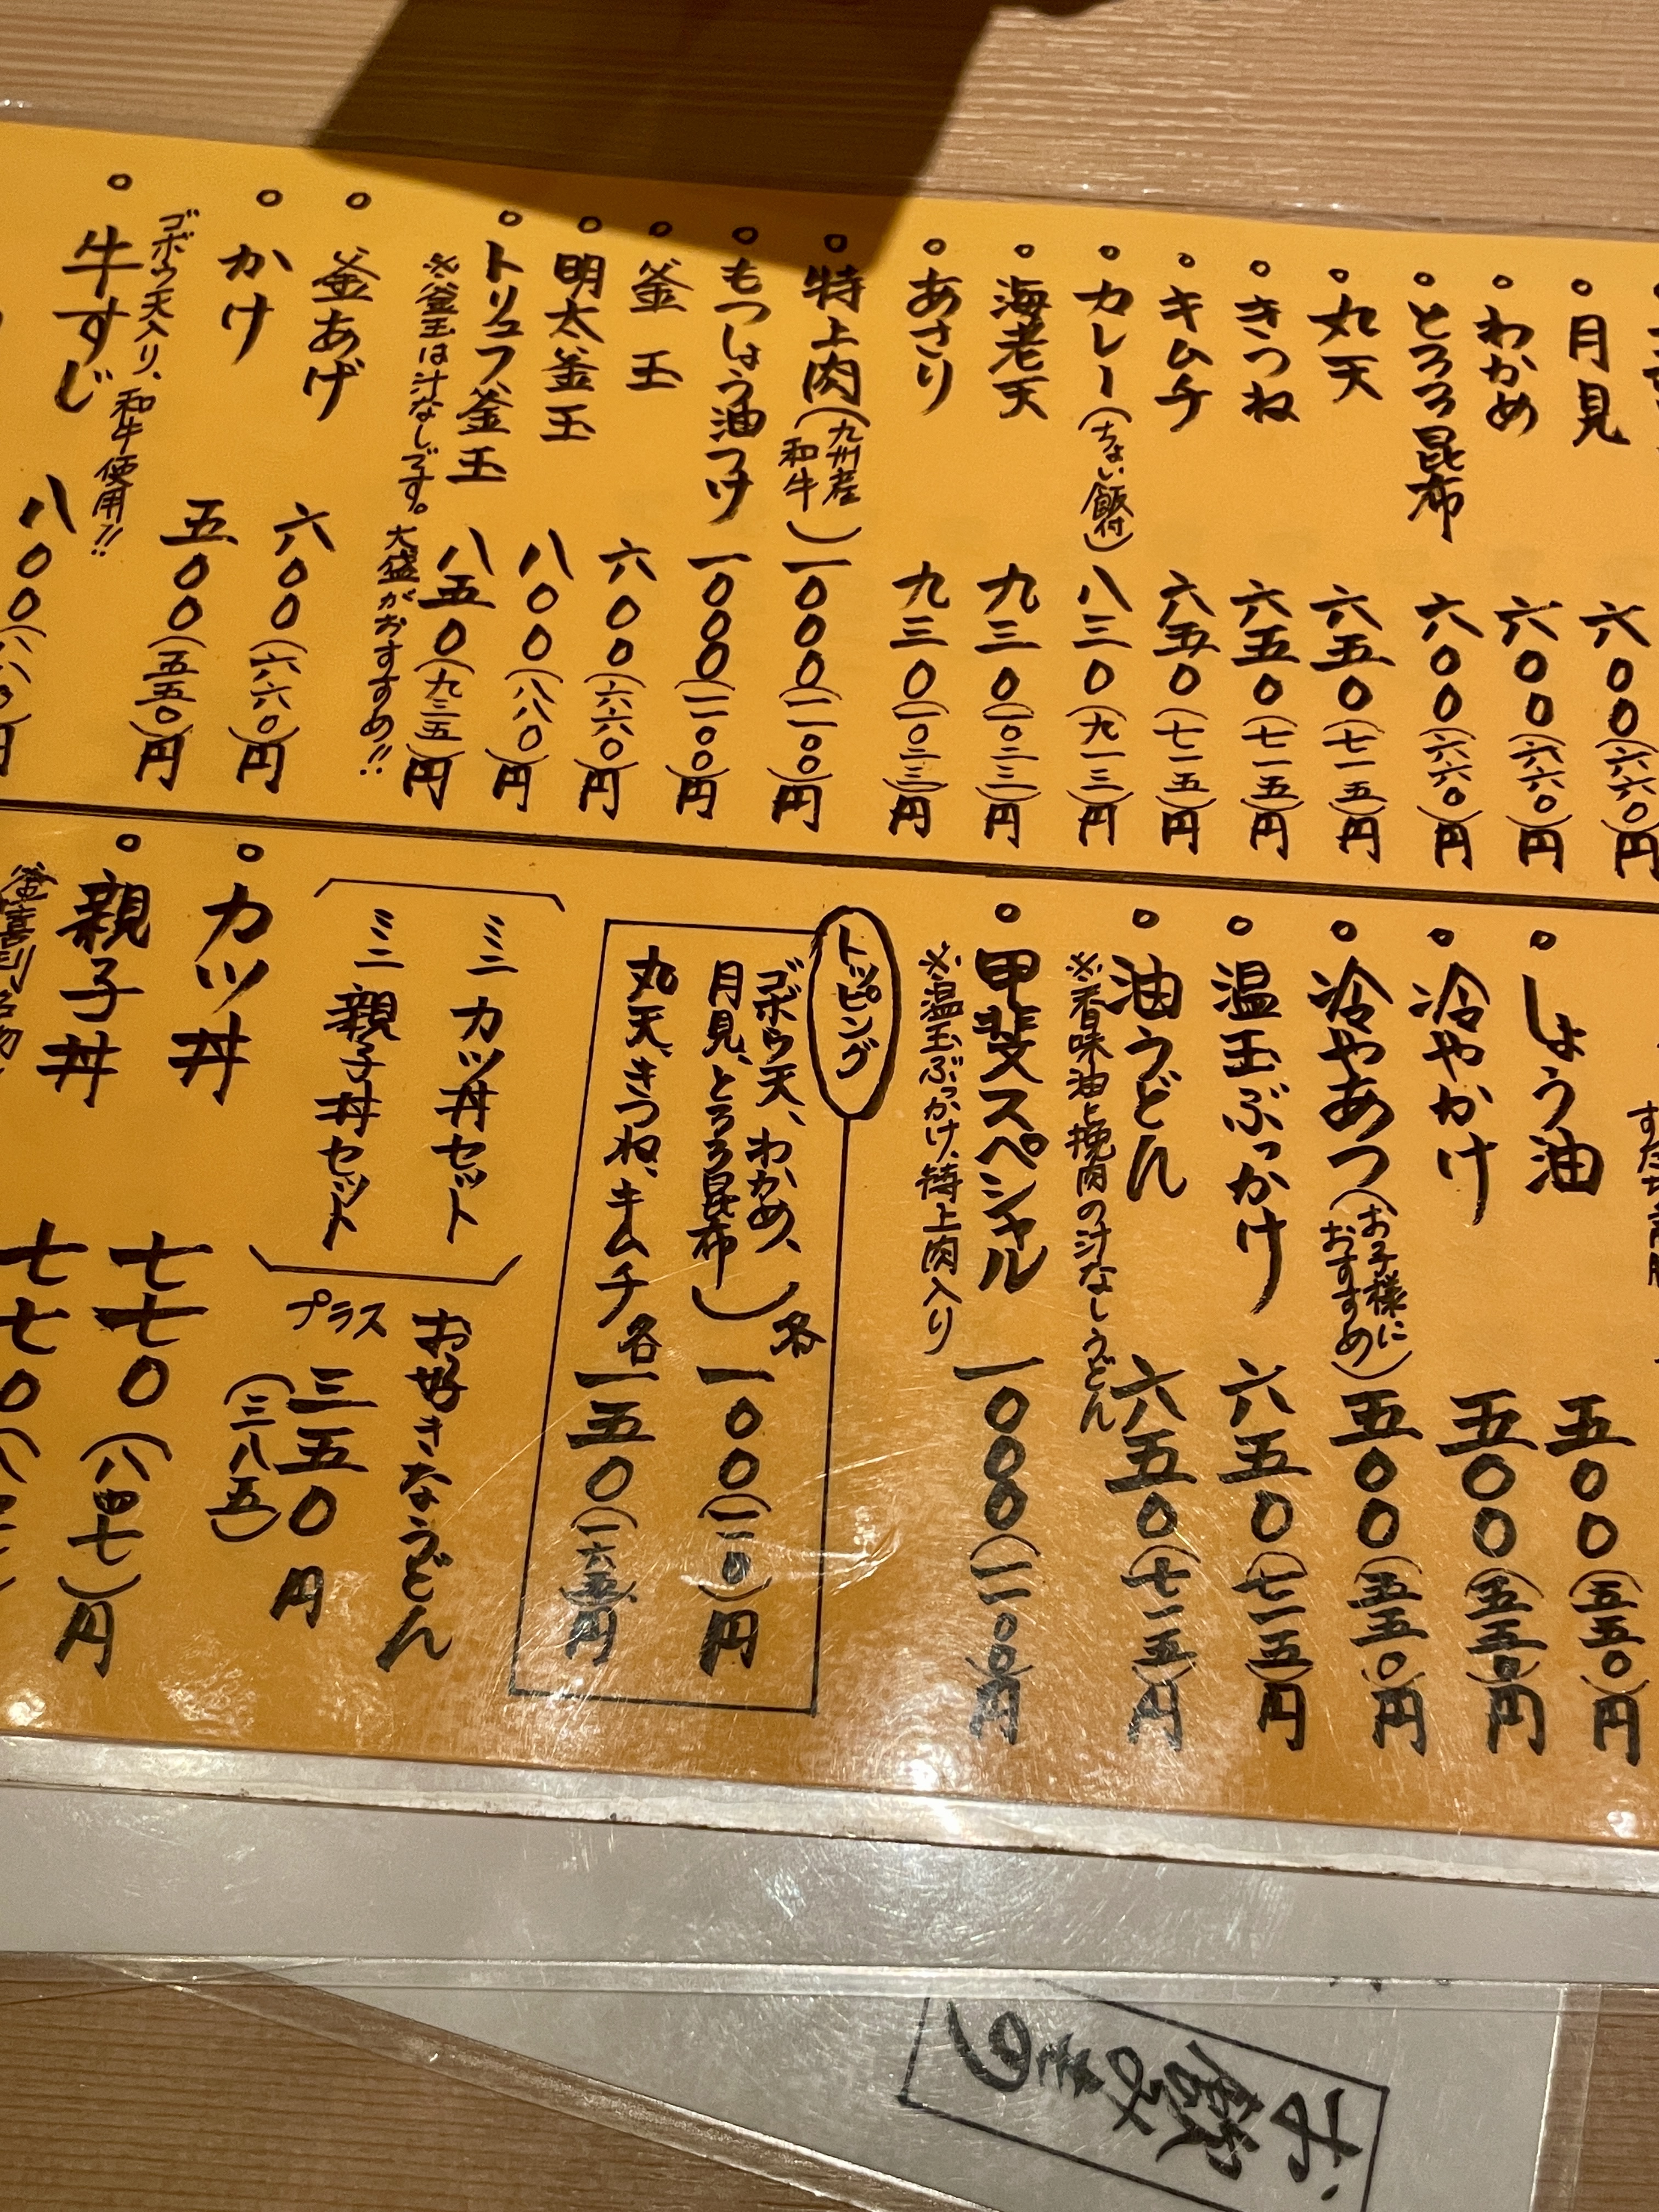 月見 六〇〇(六六〇)円
わかめ 六〇〇(六六〇)円
とろろ昆布 六〇〇(六六〇)円
丸天 六五〇(七一五)円
きつね 六五〇(七一五)円
キムチ 六五〇(七一五)円
カレー(ちょい飯付) 八三〇(九一三)円
海老天 九三〇(一〇二三)円
あさり 九三〇(一〇二三)円
特上肉(九州産和牛) 一〇〇〇(一一〇〇)円
もつしょう油つけ 一〇〇〇(一一〇〇)円
釜玉 六〇〇(六六〇)円
明太釜玉 八〇〇(八八〇)円
トリュフ釜玉 八五〇(九三五)円
※釜玉は汁なしです。大盛がおすすめ!!
釜あげ 六〇〇(六六〇)円
かけ 五〇〇(五五〇)円
ゴボウ天入り、和牛使用!!
牛すじ 八〇〇(八八〇)円
しょう油 五〇〇(五五〇)円
冷やかけ 五〇〇(五五〇)円
冷やあつ(お子様におすすめ) 五〇〇(五五〇)円
温玉ぶっかけ 六五〇(七一五)円
油うどん 六五〇(七一五)円
※香味油と挽肉の汁なしうどん
甲斐スペシャル 一〇〇〇(一一〇〇)円
※温玉ぶっかけ、特上肉入り
トッピング
ゴボウ天、わかめ、
月見、とろろ昆布 各一〇〇(一一〇)円
丸天、きつね、キムチ 各一五〇(一六五)円
ミニカツ丼セット
ミニ親子丼セット
お好きなうどん
プラス 三五〇(三八五)円
カツ丼 七七〇(八四七)円
親子丼 七七〇
お飲みもの